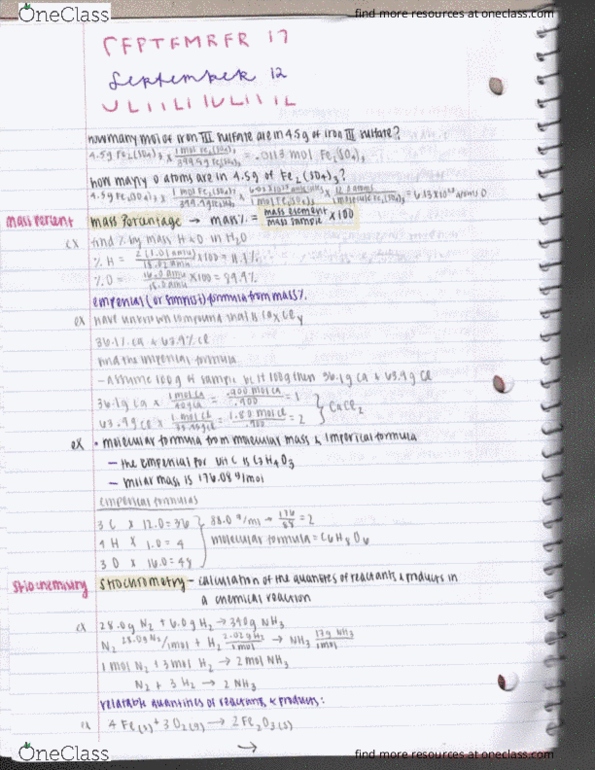 OneClass
find more resources at oneclass.com
SEPTEMBER 12
September 12
how many mol of iron III sulfate are in 4.5g of iron III sulfate?
4.5g Fe₂(SO₄)₃ x 1 mol Fe₂(SO₄)₃ / 399.9g Fe₂(SO₄)₃ = .0113 mol Fe₂(SO₄)₃
how many O atoms are in 4.5g of Fe₂(SO₄)₃?
4.5g Fe₂(SO₄)₃ x 1 mol Fe₂(SO₄)₃ / 399.9g Fe₂(SO₄)₃ x
mass percent
mass percentage → mass % = mass element / mass sample x 100
ex find % by mass H & O in H₂O
% H = 2(1.01 amu) / 18.02 amu x 100 = 11.1%
% O = 16.0 amu / 18.0 amu x 100 = 88.9%
empirical (or simplist) formula from mass %
ex have unknown compound that is CaxCly
36.1% Ca & 63.9% Cl
find the imperial formula
- Assume 100g of sample but it 100g then 36.1g Ca & 63.9g Cl
36.1g Ca x 1 mol Ca / 40g Ca = .900 mol Ca / .900 = 1
63.9g Cl x 1 mol Cl / = 1.80 mol Cl / .900 = 2 } CaCl₂
ex • molecular formula from molecular mass & imperical formula
- the emperial for vit C is C₃H₄O₃
- molar mass is 176.08 g/mol
emperical formulas
3 C x 12.0 = 36
4 H x 1.0 = 4
3 O x 16.0 = 48
88.0 g/ml → 176 / 88 = 2
molecular formula = C₆H₈O₆
stiochemistry
stiochiometry - calculation of the quantities of reactants & products in
a chemical reaction
ex 28.0g N₂ + 6.0g H₂ → 34.0g NH₃
N₂ 28.0g N₂ / 1 mol + H₂ 2.02g H₂ / 1 mol → NH₃ 17g NH₃ / 1 mol
1 mol N₂ + 3 mol H₂ → 2 mol NH₃
N₂ + 3 H₂ → 2 NH₃
relatable quantities of reactions & products:
ex 4 Fe(s) + 3 O₂(g) → 2 Fe₂O₃(s)
→
OneClass
find more resources at oneclass.com